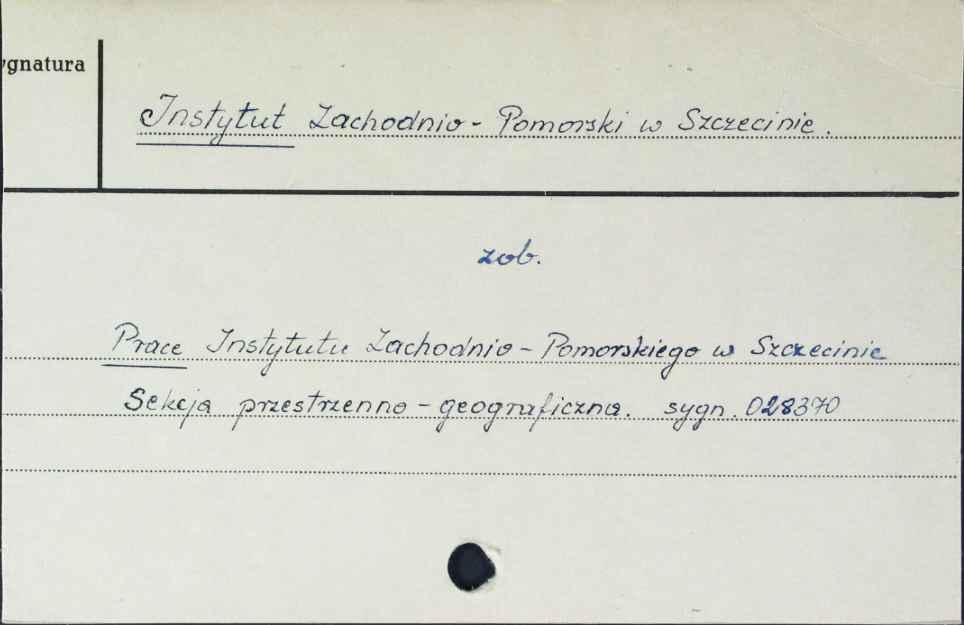 ygnatura
Instytut Zachodnio - Pomorski w Szczecinie.
zob.
Prace Instytutu Zachodnio - Pomorskiego w Szczecinie
Sekcja przestrzenno - geograficzna. sygn. 028370